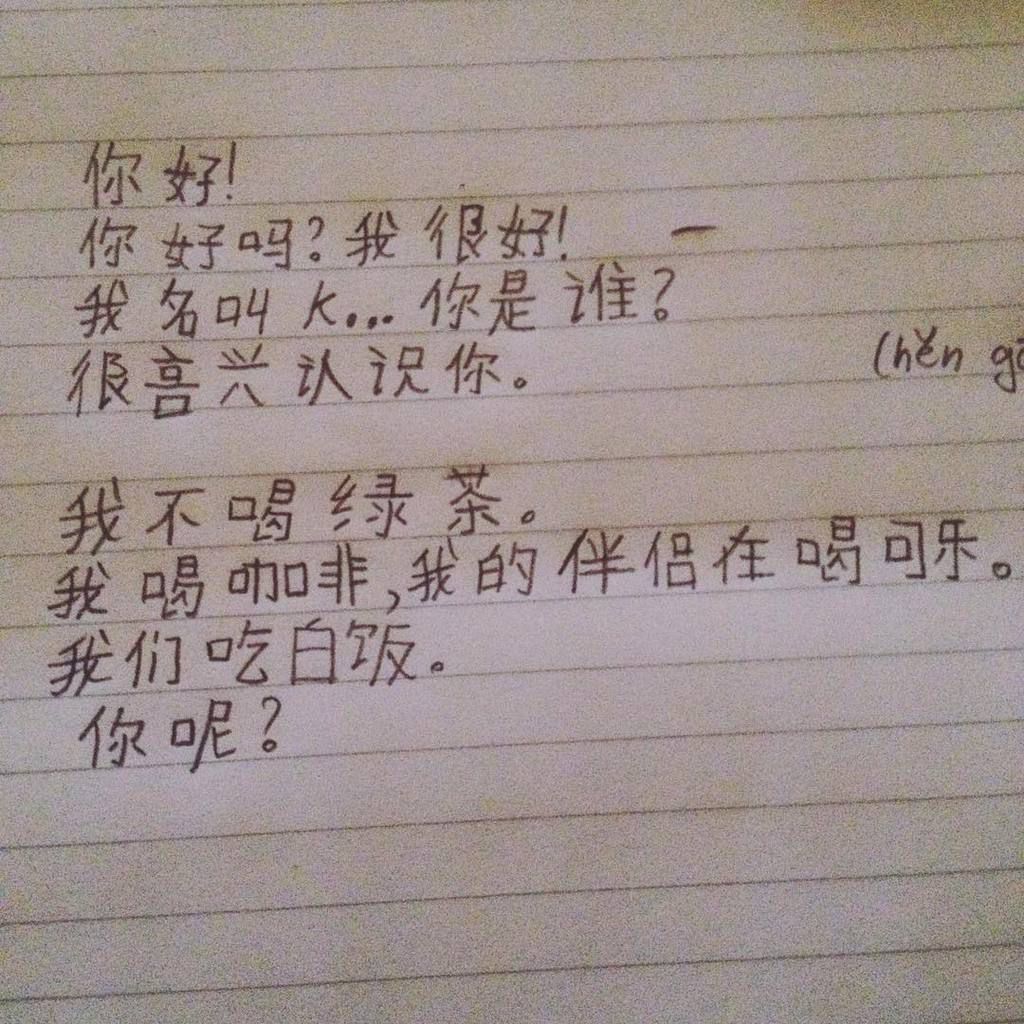 你好!
你好吗?我很好! —
我名叫 K... 你是谁?
很喜兴认识你。 (hěn gā
我不喝绿茶。
我喝咖啡,我的伴侣在喝可乐。
我们吃白饭。
你呢?